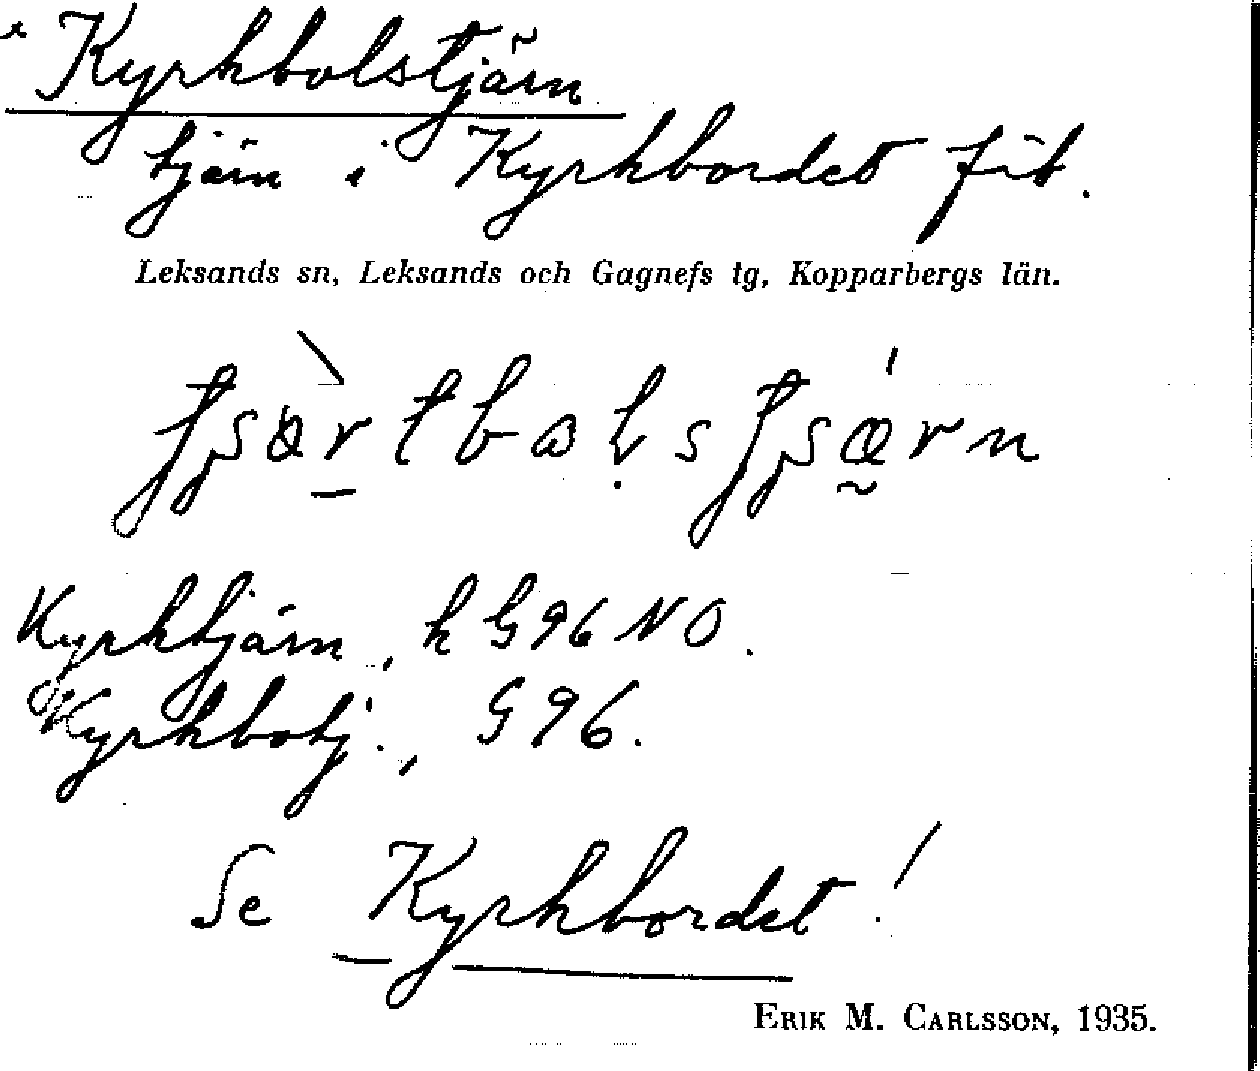 Kyrkbolstjärn
tjärn i Kyrkbordet fäb.
Leksands sn, Leksands och Gagnefs tg, Kopparbergs län.
Kyrktjärn, k G96 NO.
Kyrkbotj., G 96.
Se Kyrkbordet!
ERIK M. CARLSSON, 1935.